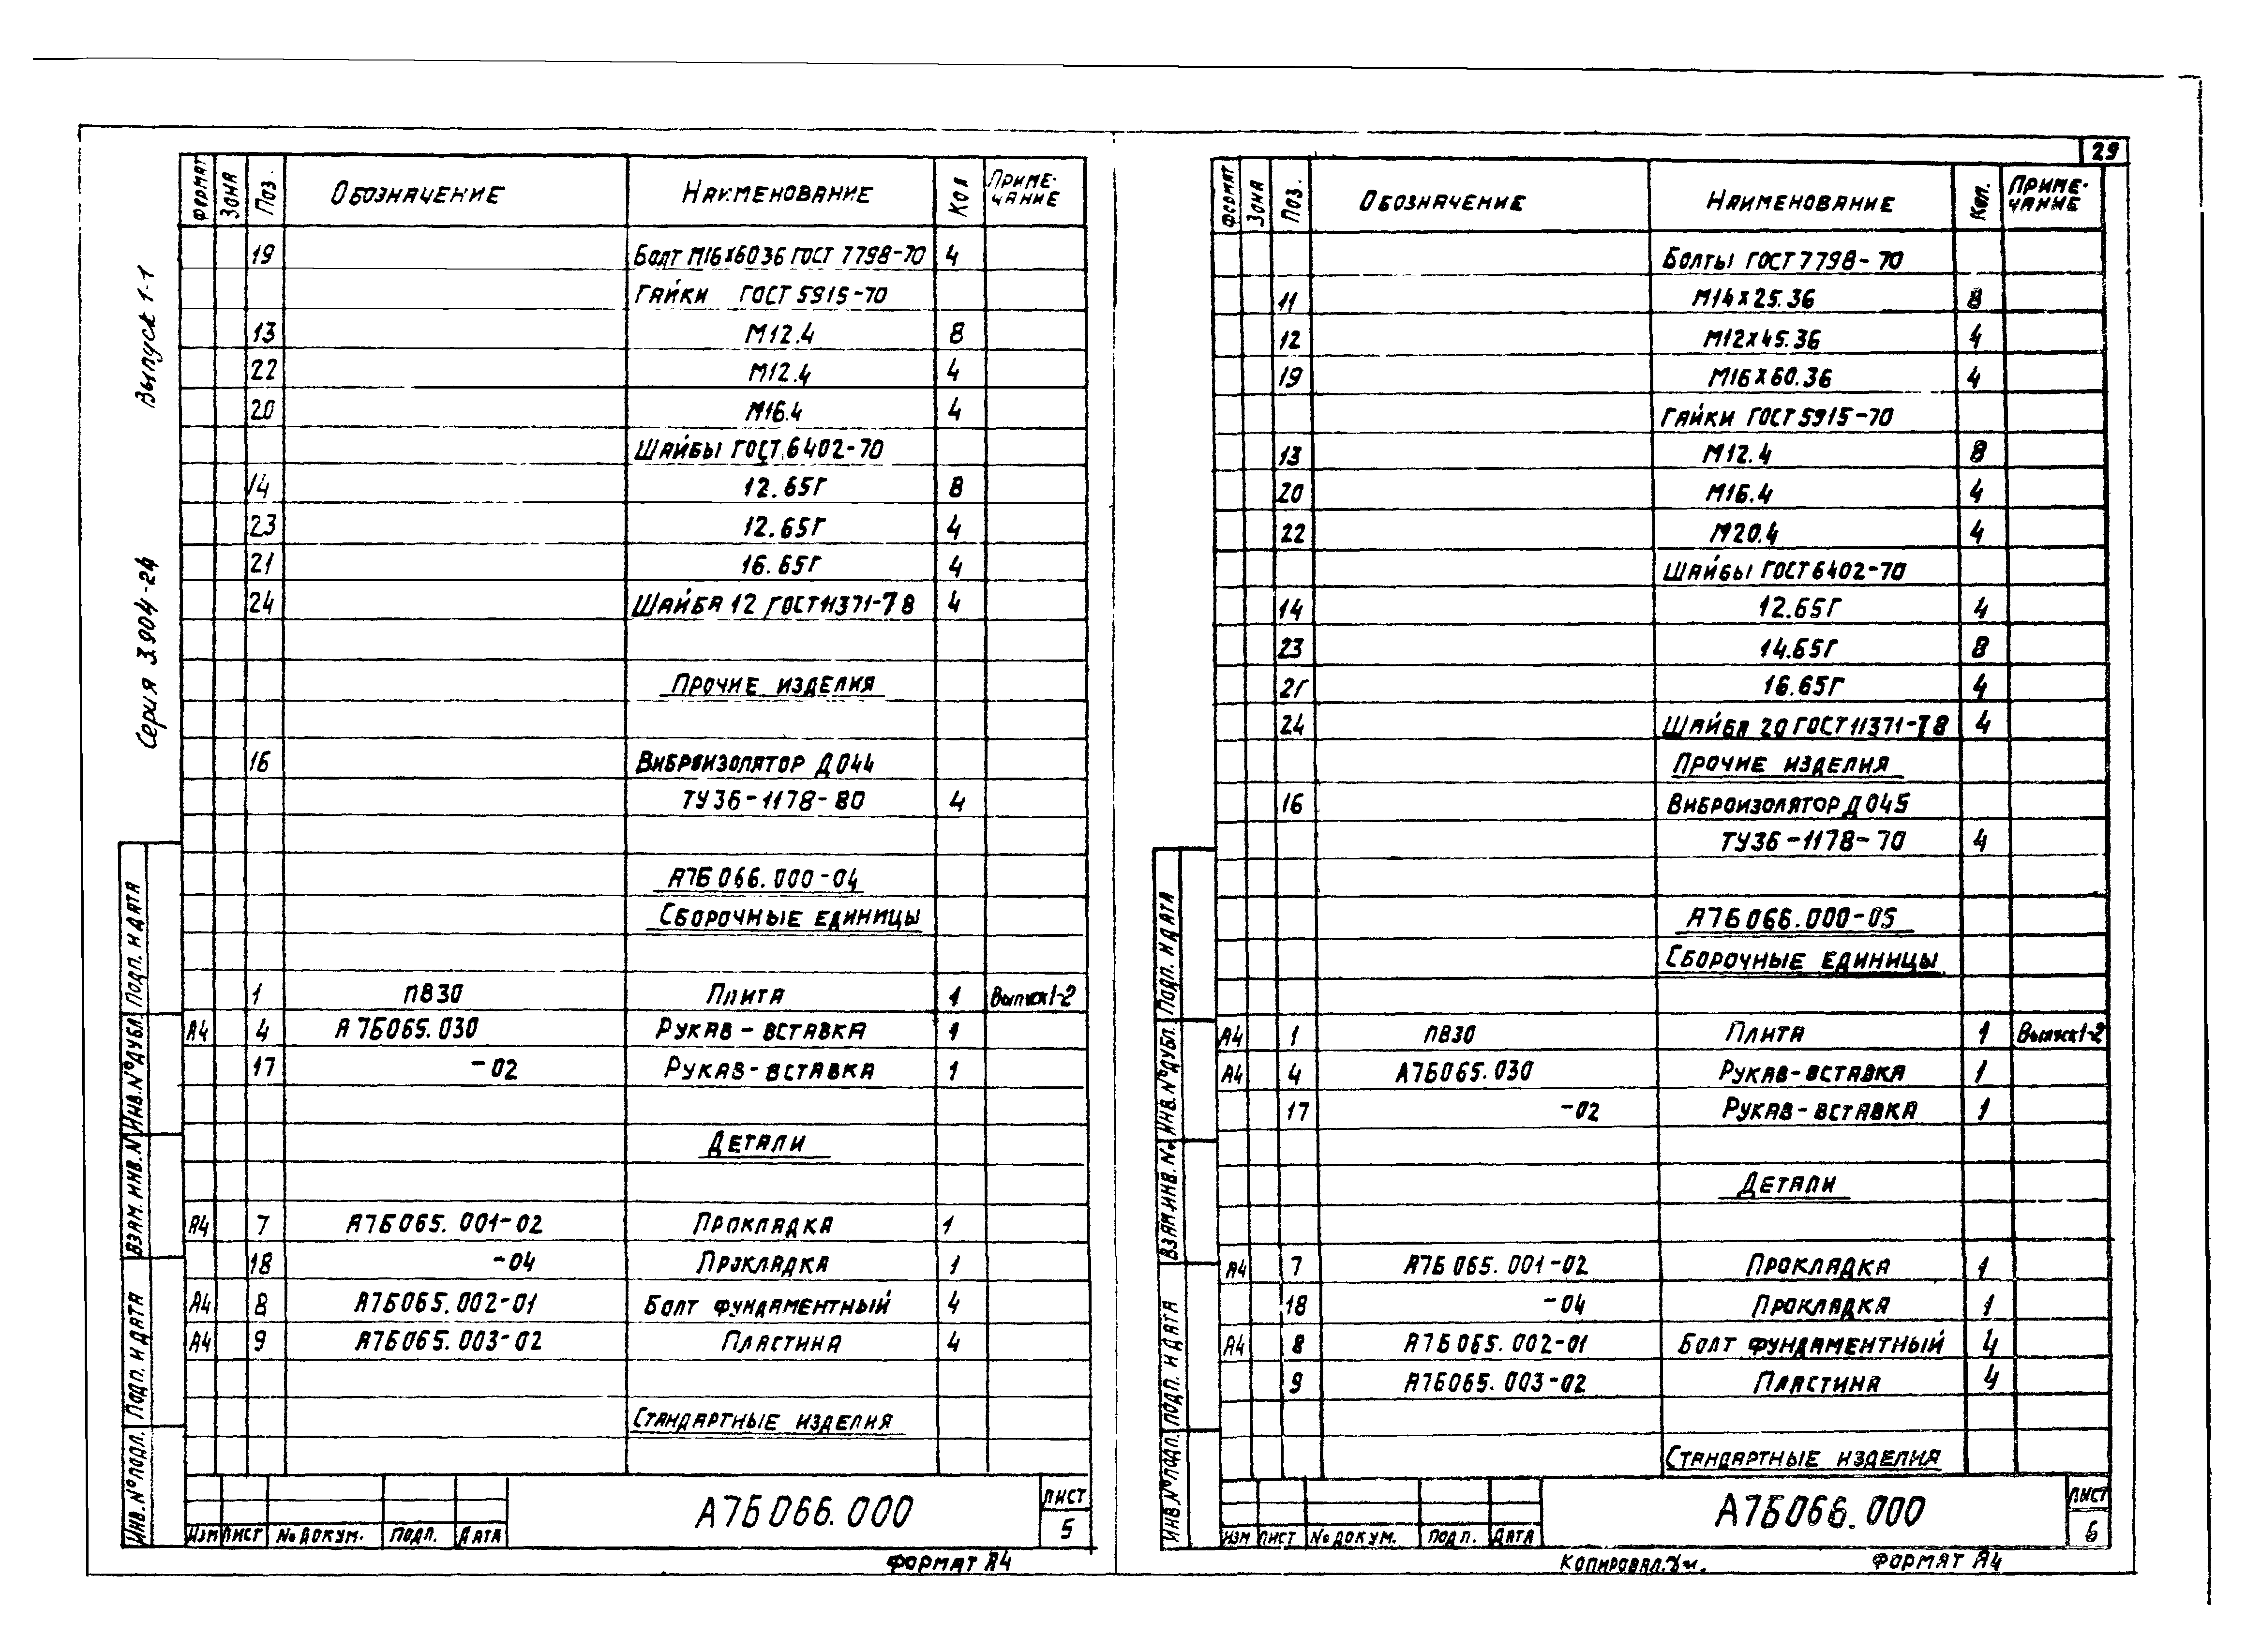 29
Серия 3.904-24 Выпуск 1-1
ФОРМАТ ЗОНА Поз. ОБОЗНАЧЕНИЕ НАИМЕНОВАНИЕ Кол ПРИМЕ-
ЧАНИЕ
19 Болт М16х6036 ГОСТ 7798-70 4
ГАЙКИ ГОСТ 5915-70
13 М12.4 8
22 М12.4 4
20 М16.4 4
ШАЙБЫ ГОСТ 6402-70
14 12.65Г 8
23 12.65Г 4
21 16.65Г 4
24 ШАЙБА 12 ГОСТ 11371-78 4
ПРОЧИЕ ИЗДЕЛИЯ
16 ВИБРОИЗОЛЯТОР Д044
ТУ36-1178-80 4
А7Б066.000-04
СБОРОЧНЫЕ ЕДИНИЦЫ
1 ПВ30 ПЛИТА 1 Выпуск1-2
А4 4 А7Б065.030 РУКАВ-ВСТАВКА 1
17 -02 РУКАВ-ВСТАВКА 1
ДЕТАЛИ
А4 7 А7Б065.001-02 ПРОКЛАДКА 1
18 -04 ПРОКЛАДКА 1
А4 8 А7Б065.002-01 БОЛТ ФУНДАМЕНТНЫЙ 4
А4 9 А7Б065.003-02 ПЛАСТИНА 4
СТАНДАРТНЫЕ ИЗДЕЛИЯ
ИНВ.№ПОДЛ. ПОДП. И ДАТА ВЗАМ. ИНВ.№ ИНВ.№ДУБЛ. ПОДП. И ДАТА
ИЗМ ЛИСТ №ДОКУМ. ПОДП. ДАТА
А7Б066.000
ЛИСТ
5
ФОРМАТ А4
ФОРМАТ ЗОНА ПОЗ. ОБОЗНАЧЕНИЕ НАИМЕНОВАНИЕ Кол. ПРИМЕ-
ЧАНИЕ
БОЛТЫ ГОСТ 7798-70
11 М14х25.36 8
12 М12х45.36 4
19 М16х60.36 4
ГАЙКИ ГОСТ 5915-70
13 М12.4 8
20 М16.4 4
22 М20.4 4
ШАЙБЫ ГОСТ 6402-70
14 12.65Г 4
23 14.65Г 8
21 16.65Г 4
24 ШАЙБА 20 ГОСТ 11371-78 4
ПРОЧИЕ ИЗДЕЛИЯ
16 ВИБРОИЗОЛЯТОР Д045
ТУ36-1178-70 4
А7Б066.000-05
СБОРОЧНЫЕ ЕДИНИЦЫ
А4 1 ПВ30 ПЛИТА 1 Выпуск1-2
А4 4 А7Б065.030 РУКАВ-ВСТАВКА 1
17 -02 РУКАВ-ВСТАВКА 1
ДЕТАЛИ
А4 7 А7Б065.001-02 ПРОКЛАДКА 1
18 -04 ПРОКЛАДКА 1
А4 8 А7Б065.002-01 БОЛТ ФУНДАМЕНТНЫЙ 4
9 А7Б065.003-02 ПЛАСТИНА 4
СТАНДАРТНЫЕ ИЗДЕЛИЯ
ИНВ.№ПОДЛ. ПОДП. И ДАТА ВЗАМ ИНВ.№ ИНВ.№ДУБЛ. ПОДП. И ДАТА
ИЗМ ЛИСТ №ДОКУМ. ПОДП. ДАТА
А7Б066.000
ЛИСТ
6
КОПИРОВАЛ. ФОРМАТ А4